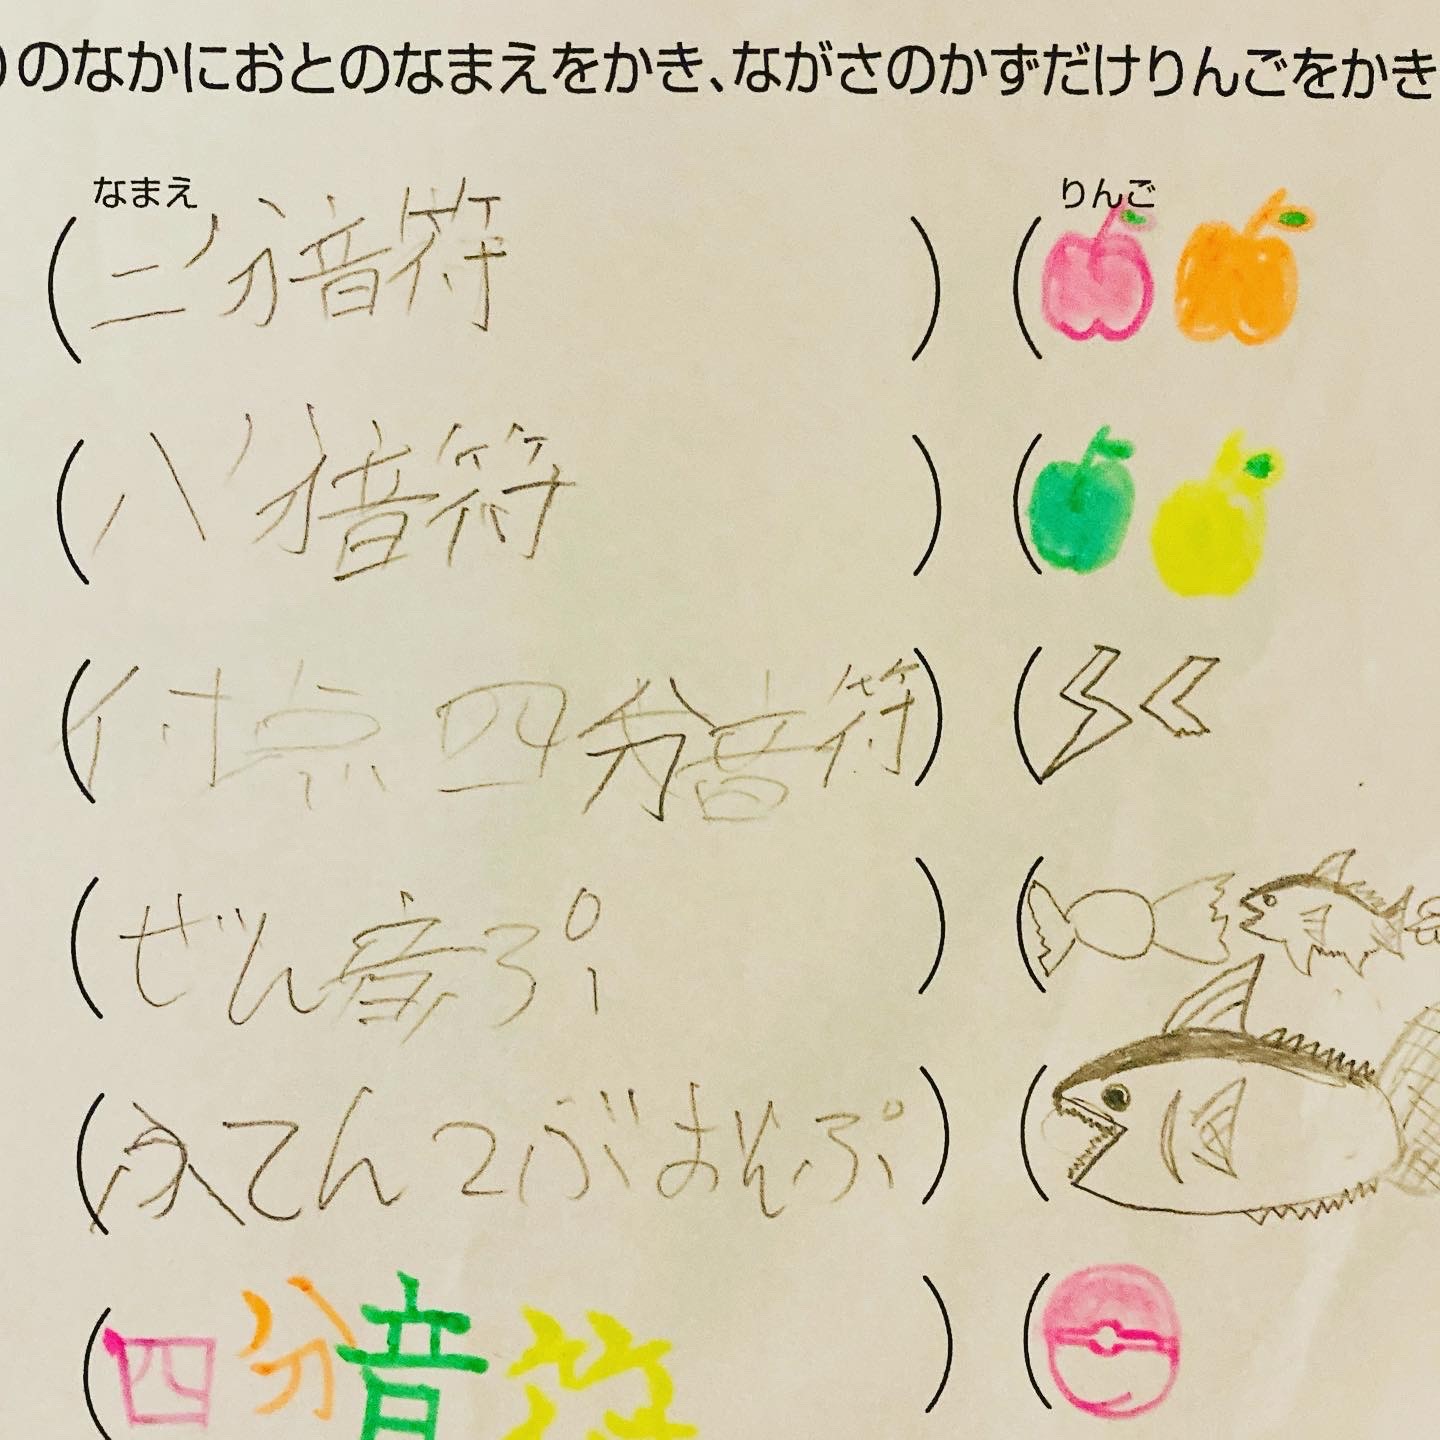 )のなかにおとのなまえをかき、ながさのかずだけりんごをかき
なまえ りんご
(二分音符) (
(八分音符) (
(付点四分音符) (
(ぜん音ぷ) (
(ふてん2ぶおんぷ) (
(四分音符) (